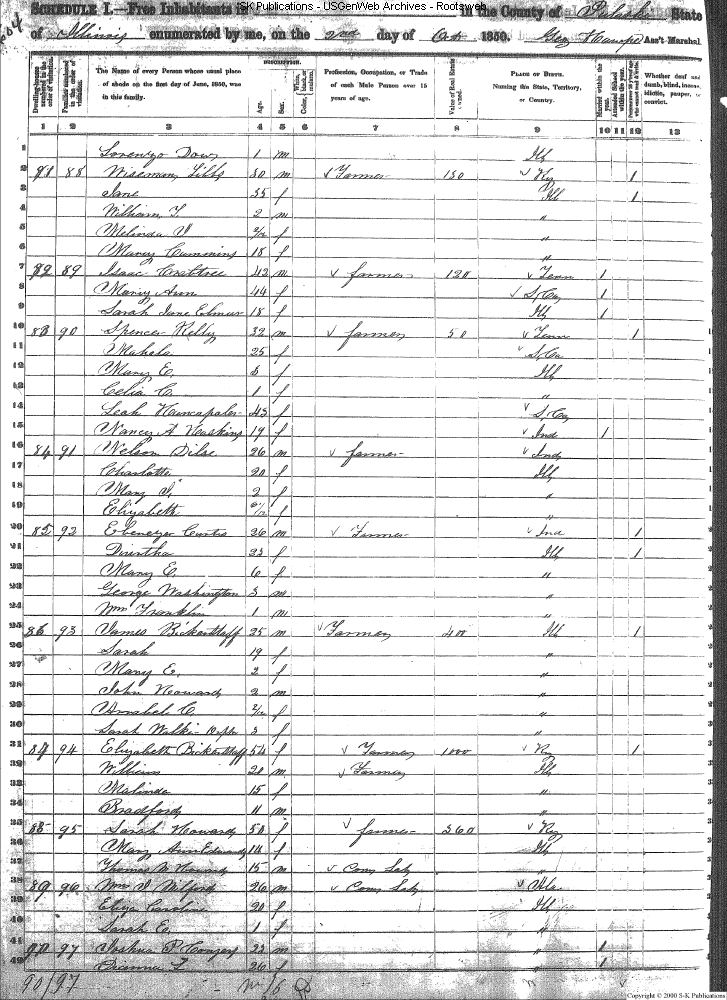 SK Publications - USGenWeb Archives - Rootsweb
SCHEDULE I.—Free Inhabitants in the County of Pulaski State
of Illinois enumerated by me, on the 2nd day of Oct 1850. Ass't Marshal.
DESCRIPTION.
Dwelling-houses numbered in the order of visitation.
Families numbered in the order of visitation.
The Name of every Person whose usual place of abode on the first day of June, 1850, was in this family.
Age.
Sex.
Color, White, black, or mulatto.
Profession, Occupation, or Trade of each Male Person over 15 years of age.
Value of Real Estate owned.
PLACE OF BIRTH. Naming the State, Territory, or Country.
Married within the year.
Attended School within the year.
Whether deaf and dumb, blind, insane, idiotic, pauper, or convict.
1 2 3 4 5 6 7 8 9 10 11 12 13
1 Lorenzo Dow 1 m Ill
2 81 88 Wiseman 30 m Farmer 150 Ky 1
3 Jane 35 f Ill 1
4 William T. 2 m "
5 Melinda 2/12 f "
6 Mary Cummins 18 f "
7 82 89 Isaac Crabtree 42 m farmer 120 Tenn 1
8 Mary Ann 44 f S, Ca 1
9 Sarah Jane Elmer 18 f Ill 1
10 83 90 Spencer Kelly 32 m farmer 50 Tenn 1
11 Mahala 25 f S, Ca
12 Mary E. 5 f Ill
13 Celia C. 1 f "
14 Leah 45 f S, Ca
15 Nancy A Haskins 19 f Ind 1
16 84 91 Nelson 26 m farmer Ind
17 Charlotte 20 f Ill
18 Mary 2 f "
19 Elizabeth f "
20 85 92 Ebenezer Curtis 26 m Farmer Ind 1
21 23 f Ill 1
22 Mary E. 6 f "
23 George Washington 3 m "
24 Wm Franklin 1 m "
25 86 93 James Bickerstaff 25 m Farmer 400 Ill 1
26 Sarah 19 f "
27 Mary E. 2 f "
28 John Howard 2 m "
29 Annabel C 2/12 f "
30 Sarah 3 f "
31 87 94 Elizabeth Bickerstaff 54 f Farmer 1000 Ky 1
32 William 20 m Farmer Ill
33 Malinda 15 f "
34 Bradford 11 m "
35 88 95 Sarah Howard 50 f farmer 360 Ky
36 Mary Ann Edwards 14 f Ill
37 Thomas Howard 15 m Com Lab "
38 89 96 Wm Wilford 26 m Com Lab Ala
39 Eliza Caroline 20 f Ill
40 Sarah E. 1 f "
41 90 97 Joshua P 22 m " 1
42 20 f " 1
90/97
Copyright © 2000 S-K Publications